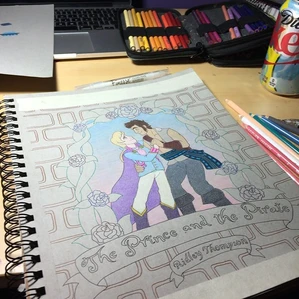 The Prince and the Pirate
Riley Thompson